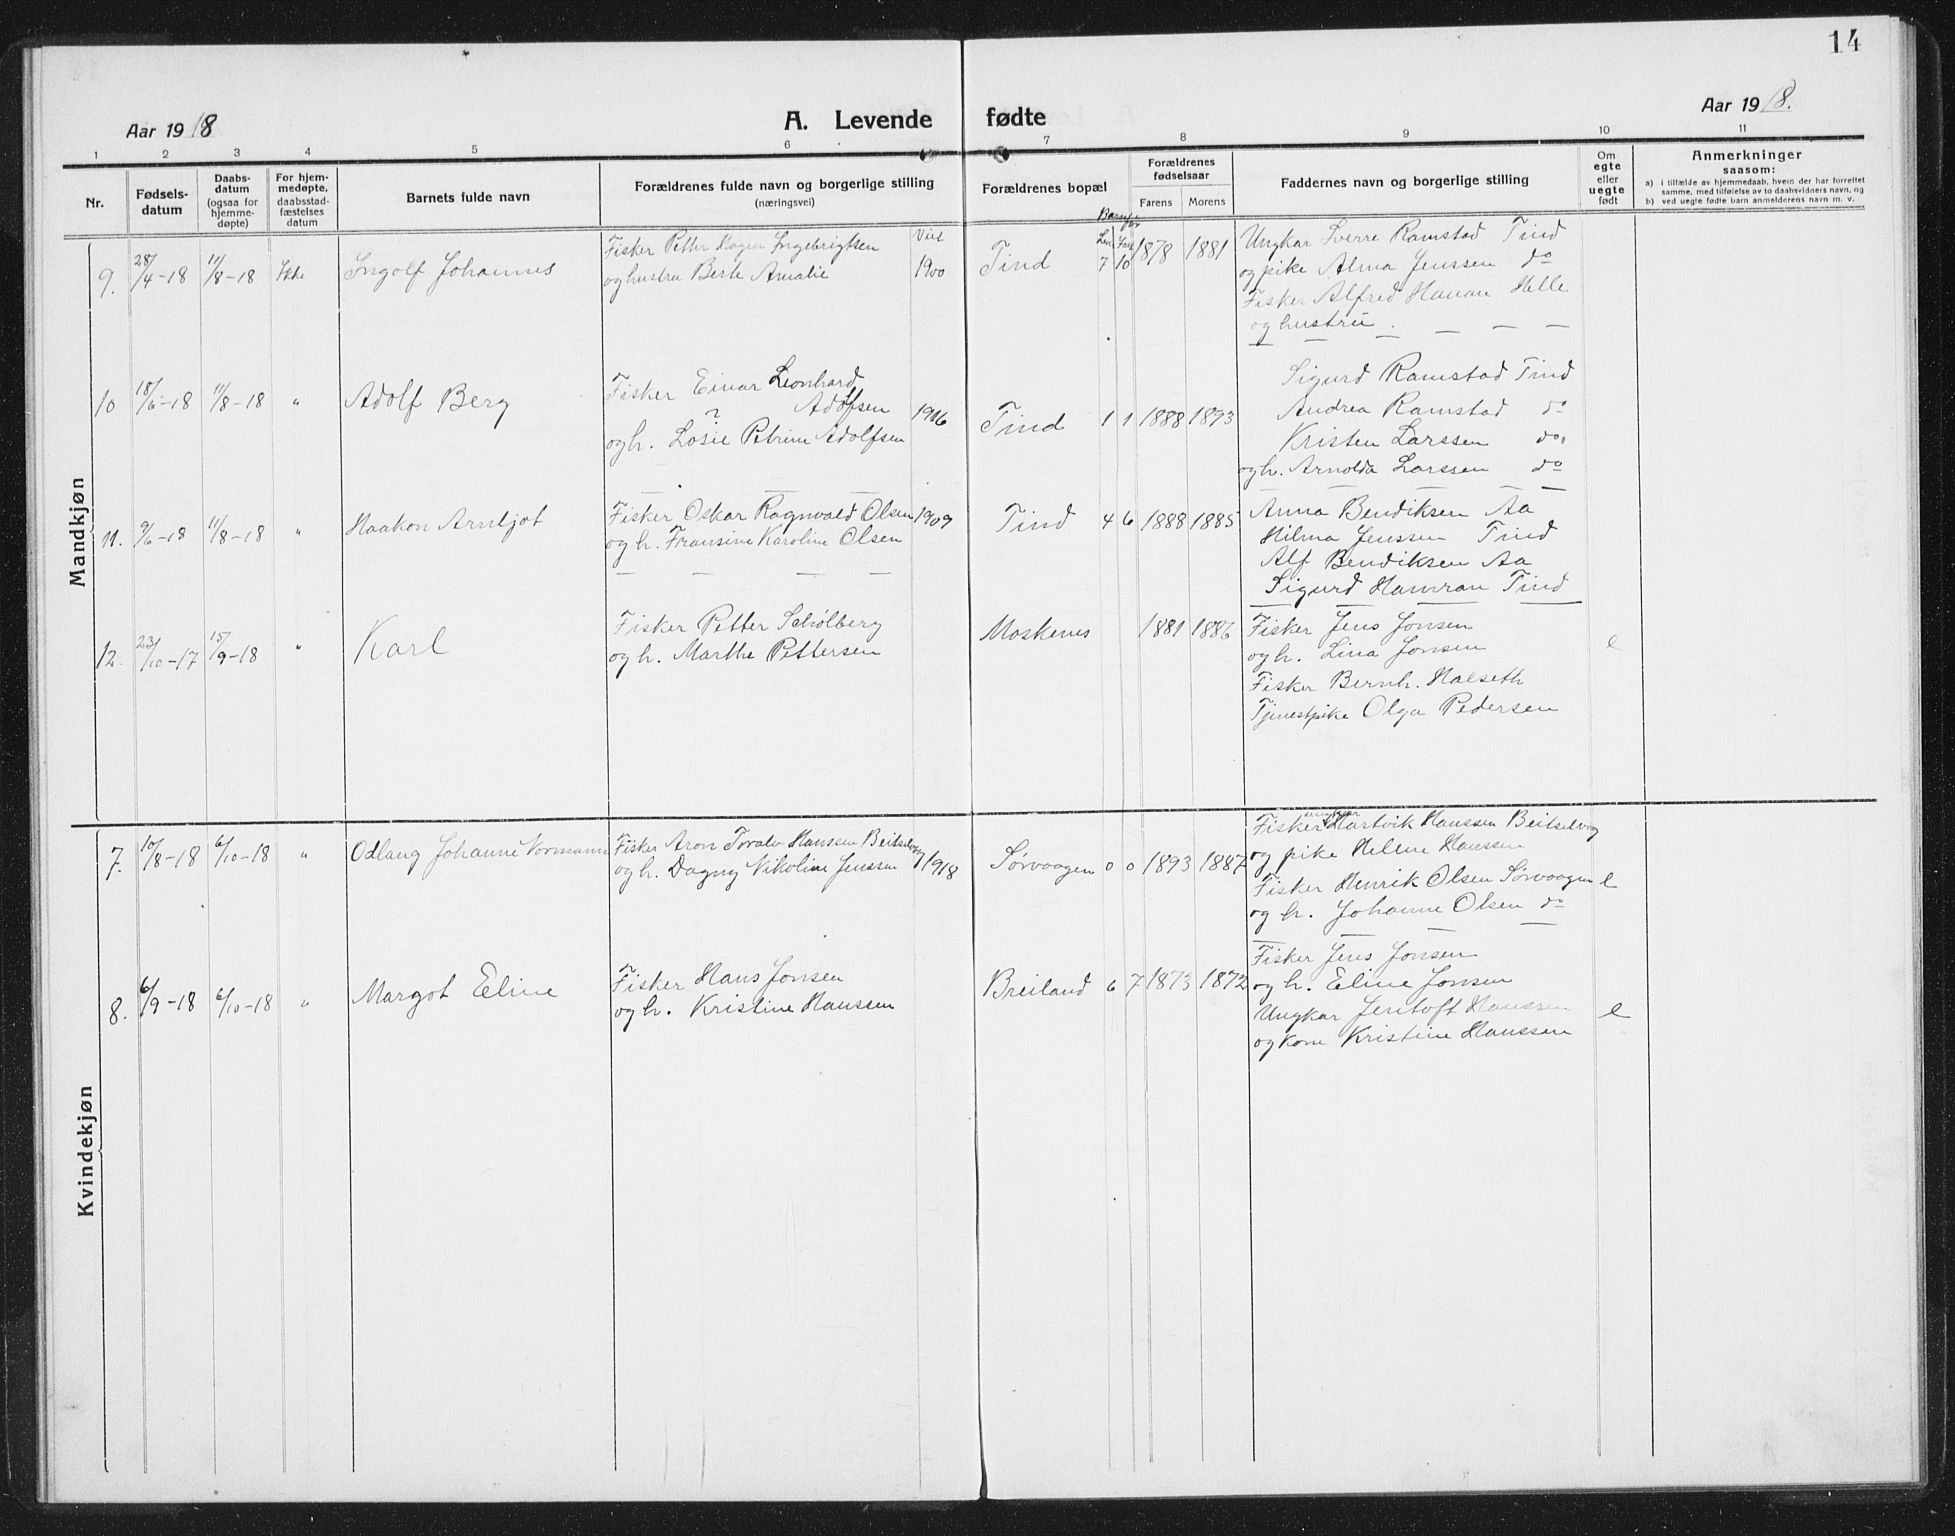 14
Aar 1918
A. Levende fødte
Aar 1918.
1 2 3 4 5 6 7 8 9 10 11
Nr.
Fødsels-
datum
Daabs-
datum
(ogsaa for
hjemme-
døpte)
For hjem-
medøpte,
daabsstad-
fæstelses
datum
Barnets fulde navn
Forældrenes fulde navn og borgerlige stilling
(næringsvei)
Viet
Forældrenes bopæl
Forældrenes
fødselsaar
Farens Morens
Faddernes navn og borgerlige stilling
Om
egte
eller
uegte
født
Anmerkninger
saasom:
a) i tilfælde av hjemmedaab, hvem der har forrettet
samme, med tilføielse av to daabsvidners navn, og
b) ved uegte fødte barn anmelderens navn m. v.
Mandkjøn
9. 28/4-18 11/8-18 Ingolf Johannes
Fisker Petter Ingebrigtsen
og hustru Berte Amalie
1900
Tind 7 10 1878 1881
Ungkar Sverre Ramstad Tind
og pike Alma Jenssen do
Fisker Alfred Hanan Helle
og hustru . — — —
10 18/6-18 11/8-18 " Adolf Berg
Fisker Einar Leonhard
Adolfsen
?
og h. Losie Petrine Adolfsen
1916
Tind 1 1 1888 1893
Sigurd Ramstad Tind
Andrea Ramstad do
Kristen Larssen do
og h. Arnolda Larssen do
11. 9/6-18 11/8-18 " Haakon Arnljot
Fisker Oskar Ragnvald Olsen
og h. Fransine Karoline Olsen
1909
Tind 4 6 1888 1885
Anna Bendiksen Aa
Hilma Jenssen Tind
Alf Bendiksen Aa
Sigurd Hamran Tind
12. 23/10-17 15/9-18 " Karl
Fisker Petter Schølberg
og h. Marthe Pettersen
Moskenes 1881 1886
Fisker Jens Jonsen
og h. Lina Jonsen
Fisker Bernh. Halseth
Tjenestpike Olga Pedersen
e
Kvindekjøn
7. 10/8-18 6/10-18 " Odlaug Johanne Normann
Fisker Aron Toralv Hanssen Beitselvog
og h. Dagny Nikoline Jenssen
1918
Sørvaagen 0 0 1893 1887
Fisker ungkar Hartvik Hanssen Beitselvog
og pike Helene Hanssen
Fisker Henrik Olsen Sørvaagen
og h. Johanne Olsen do
e
8. 6/9-18 6/10-18 " Margot Eline
Fisker Hans Jonsen
og h. Kristine Hanssen
Breiland 6 7 1873 1872
Fisker Jens Jonsen
og h. Eline Jonsen
Ungkar Jentoft Hanssen
og kone Kristine Hanssen
e